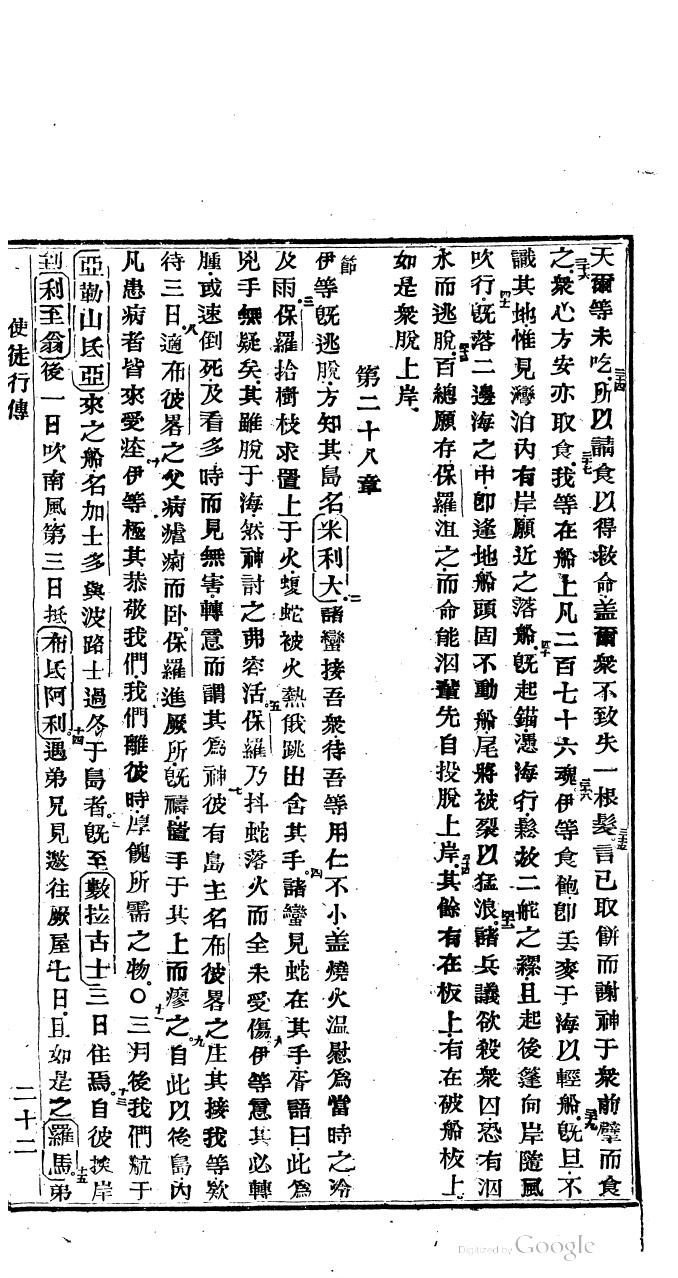 天爾等未吃所以請食以得救命盖爾衆不致失一根髮言已取餅而謝神于衆前擘而食
之衆心方安亦取食我等在船上凡二百七十六魂伊等食飽卽丢麥于海以輕船旣旦不
識其地惟見灣泊內有岸願近之落船旣起錨憑海行鬆故二舵之繆且起後篷向岸隨風
吹行旣落二邊海之中卽逢地船頭固不動船尾將被裂以猛浪諸兵議欲殺衆囚恐有泅
水而逃脫百總願存保羅沮之而命能泅輩先自投脫上岸其餘有在板上有在破船板上
如是衆脫上岸
第二十八章
節伊等旣逃脫方知其島名米利大二諸蠻接吾衆待吾等用仁不小盖燒火温慰爲當時之冷
及雨三保羅拾樹枝求置上于火蝮蛇被火熱俄跳出含其手四諸蠻見蛇在其手胥語曰此爲
兇手無疑矣其雖脫于海然神討之弗容活五保羅乃抖蛇落火而全未受傷六伊等意其必轉
腫或速倒死及看多時而見無害轉意而謂其爲神七彼有島主名布彼畧之庄其接我等欵
待三日八適布彼畧之父病瘧痢而卧保羅進厥所旣禱置手于其上而瘳之九自此以後島內
凡患病者皆來受痊十伊等極其恭敬我們我們離彼時厚餽所需之物〇十一三月後我們航于
亞勒山氐亞來之船名加士多與波路士過冬于島者十二旣至數拉古士三日住焉十三自彼挨岸
到利至翁後一日吹南風第三日抵布氐阿利十四遇弟兄見邀往厥屋七日且如是之羅馬十五弟
使徒行傳
二十二
Digitized by Google